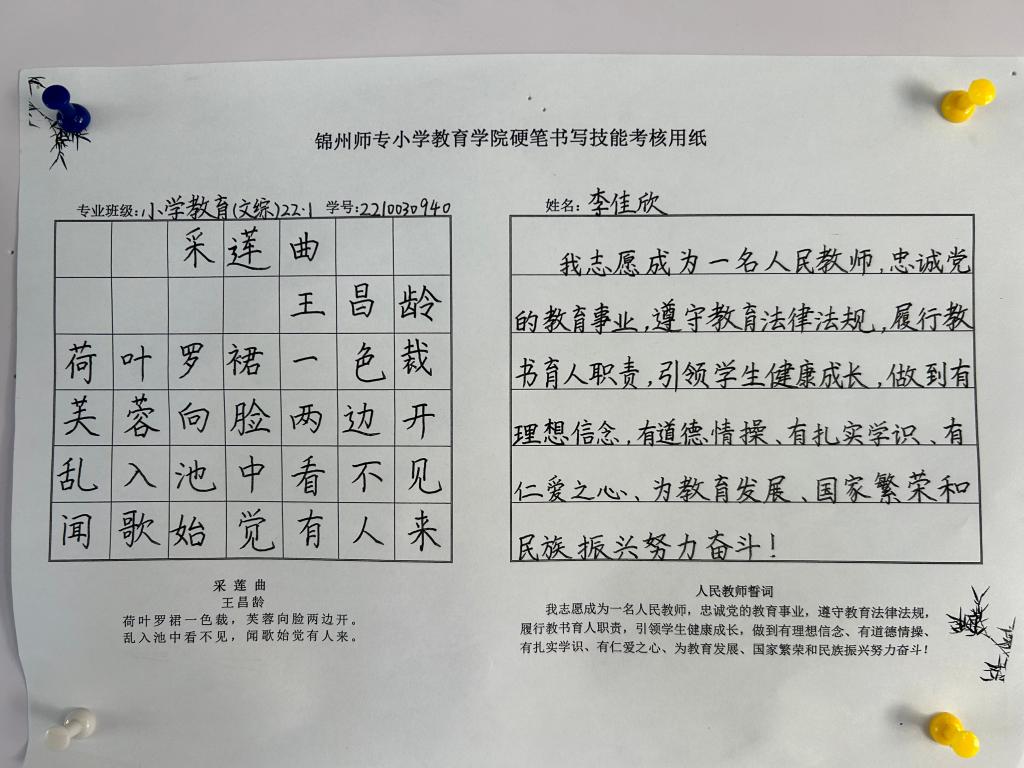 锦州师专小学教育学院硬笔书写技能考核用纸
专业班级:小学教育(文综)22·1 学号:2210030940
采莲曲
王昌龄
荷叶罗裙一色裁
芙蓉向脸两边开
乱入池中看不见
闻歌始觉有人来
采 莲 曲
王昌龄
荷叶罗裙一色裁，芙蓉向脸两边开。
乱入池中看不见，闻歌始觉有人来。
姓名:李佳欣
我志愿成为一名人民教师,忠诚党
的教育事业,遵守教育法律法规,履行教
书育人职责,引领学生健康成长,做到有
理想信念,有道德情操、有扎实学识、有
仁爱之心、为教育发展、国家繁荣和
民族振兴努力奋斗!
人民教师誓词
我志愿成为一名人民教师，忠诚党的教育事业，遵守教育法律法规，
履行教书育人职责，引领学生健康成长，做到有理想信念、有道德情操、
有扎实学识、有仁爱之心、为教育发展、国家繁荣和民族振兴努力奋斗！